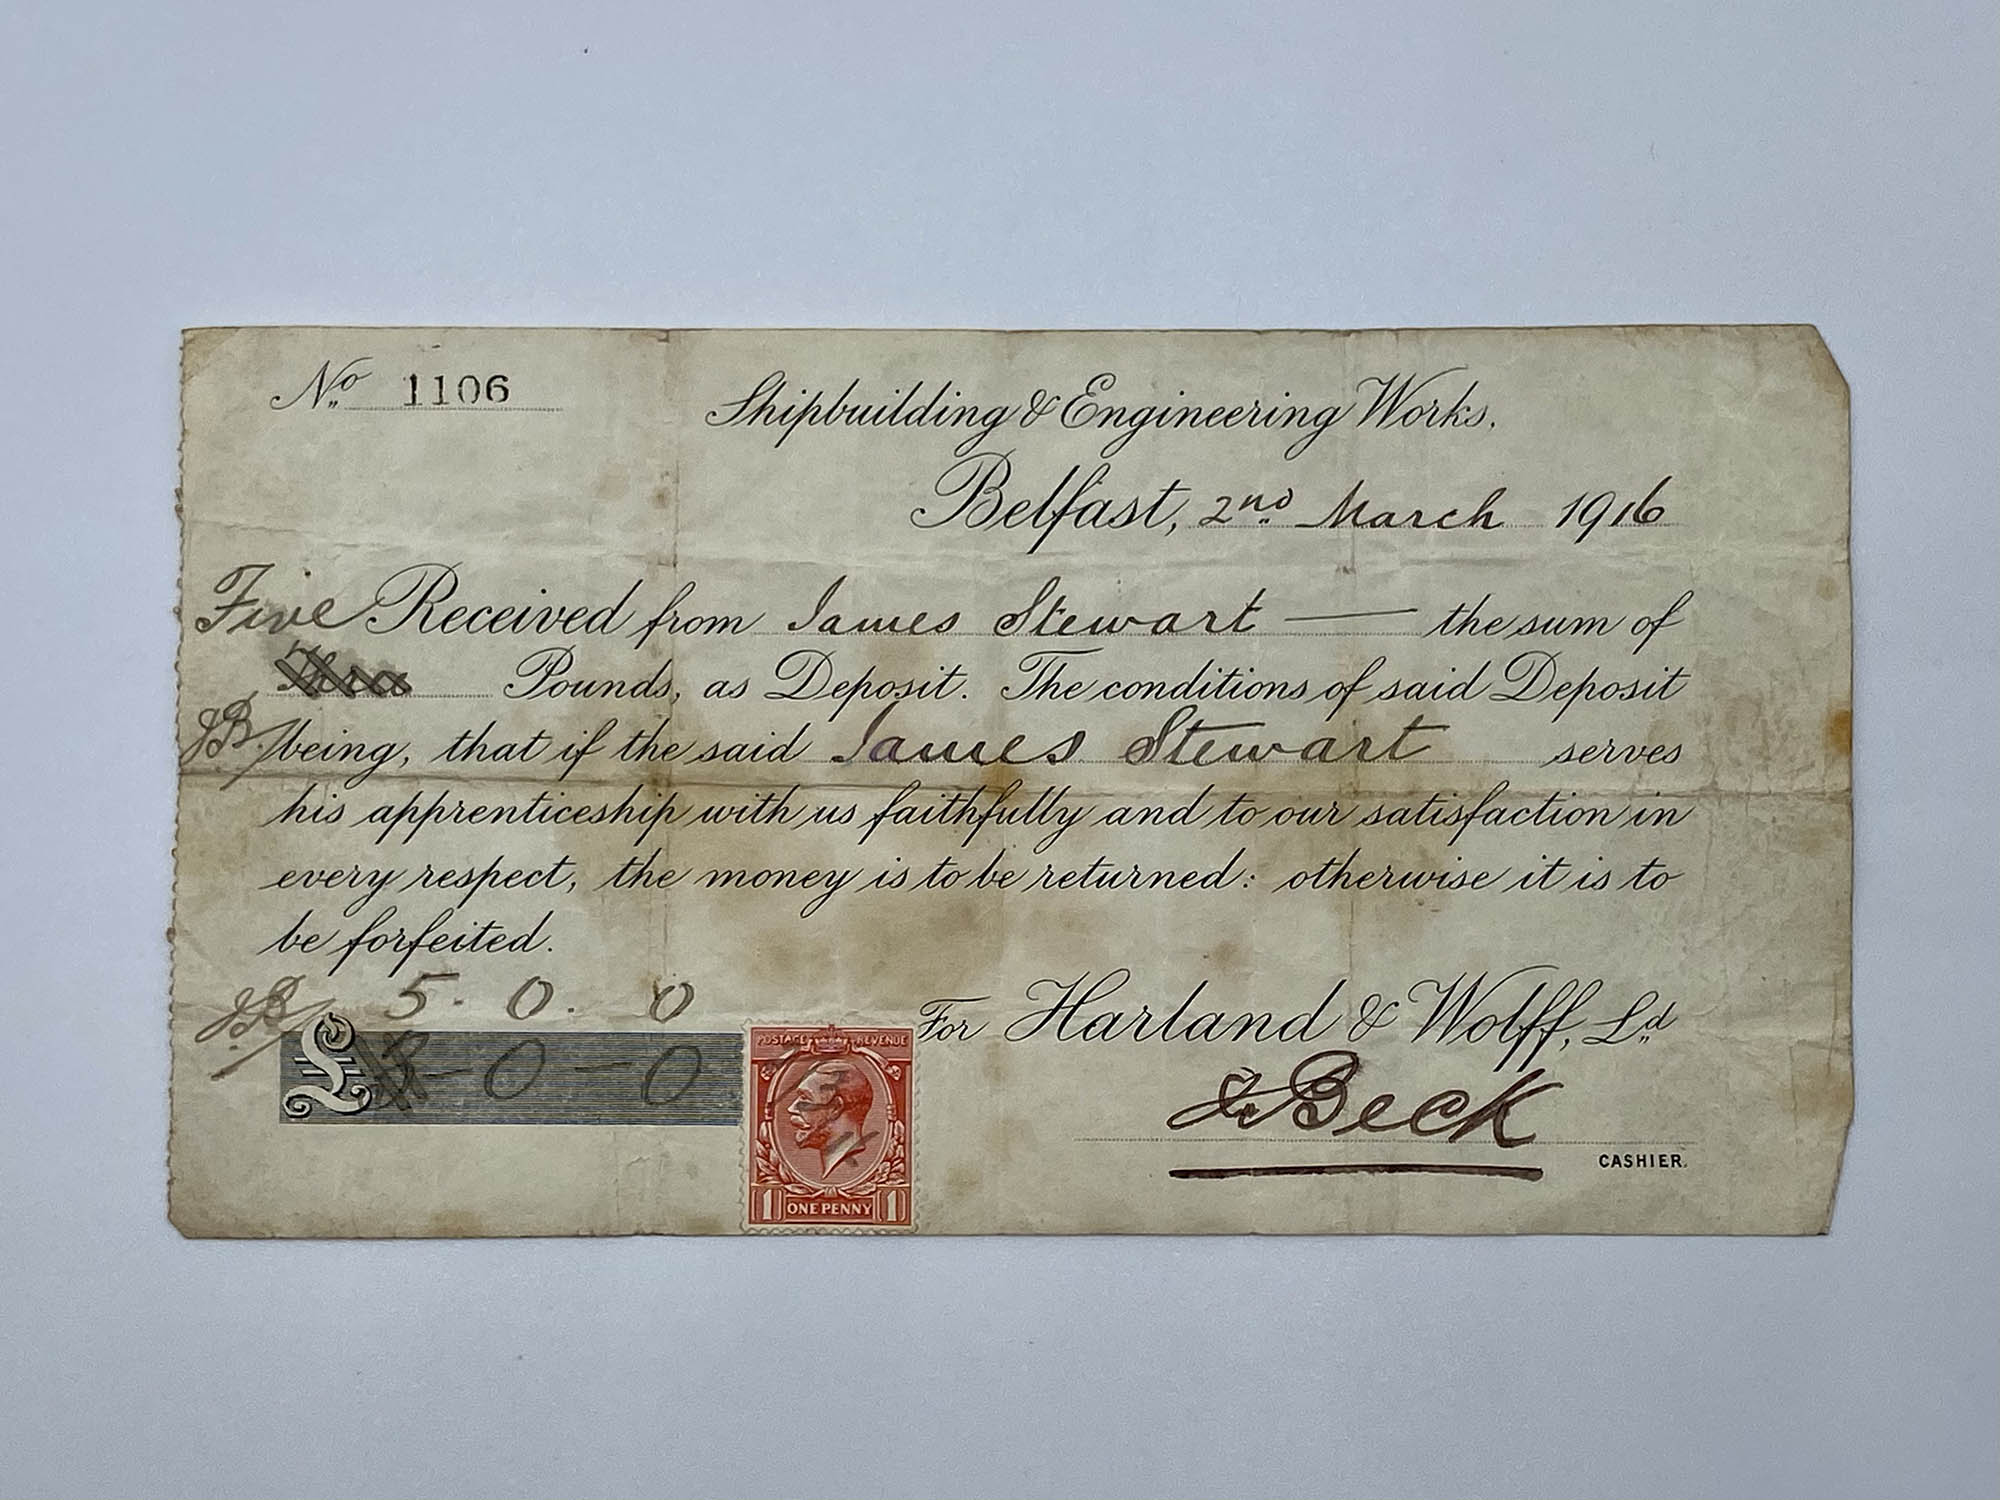 No. 1106
Shipbuilding & Engineering Works.
Belfast, 2nd March 1916
Five Received from James Stewart — the sum of
Three Pounds, as Deposit. The conditions of said Deposit
JB. being, that if the said James Stewart serves
his apprenticeship with us faithfully and to our satisfaction in
every respect, the money is to be returned: otherwise it is to
be forfeited.
JB. 5. 0. 0
£ 3 - 0 - 0
POSTAGE REVENUE
1 ONE PENNY 1
For Harland & Wolff, Ld
J Beck
CASHIER.